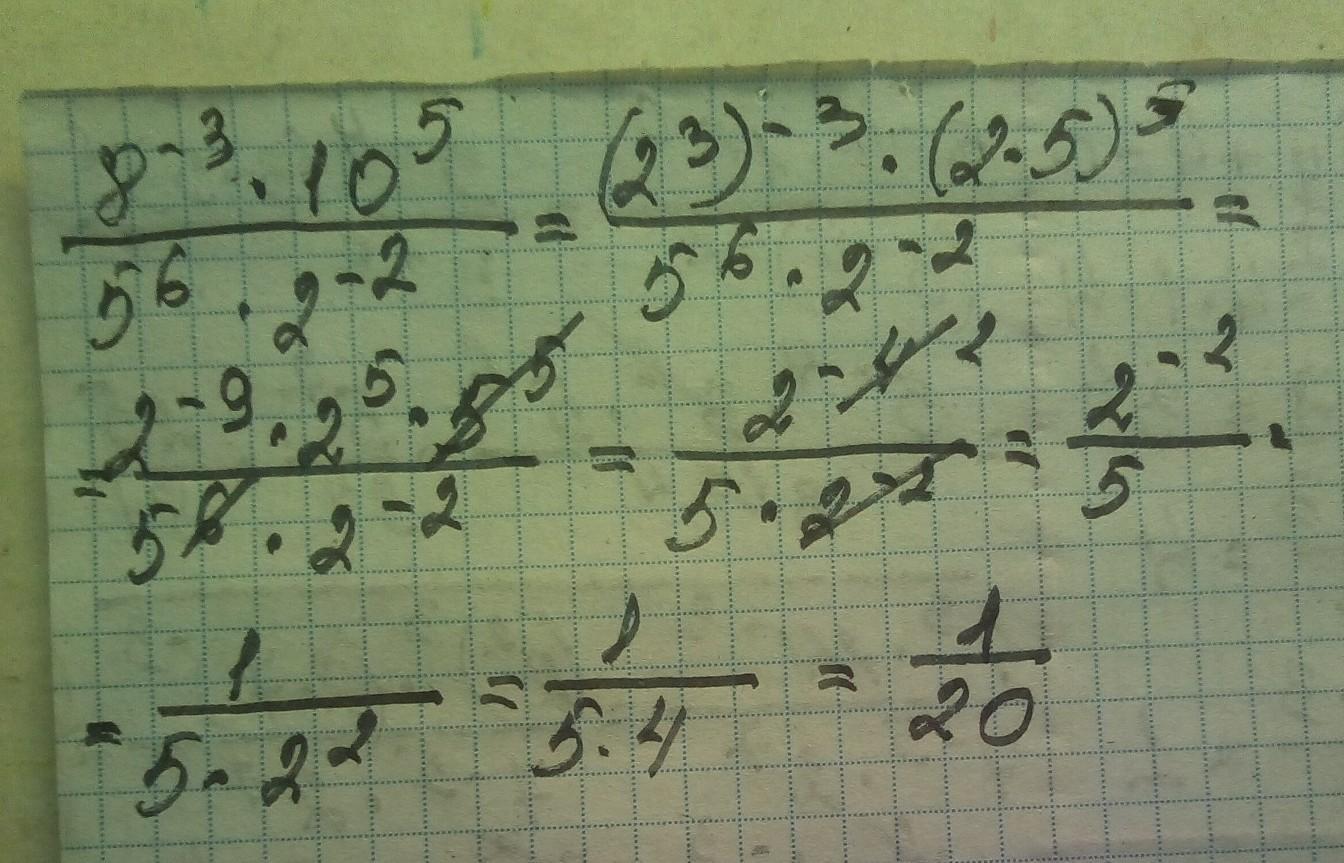 8^-3 · 10^5 / 5^6 · 2^-2 = (2^3)^-3 · (2·5)^5 / 5^6 · 2^-2 =
= 2^-9 · 2^5 · 5^5 / 5^6 · 2^-2 = 2^-4 2 / 5 · 2^-2 = 2^-2 / 5 =
= 1 / 5 · 2^2 = 1 / 5·4 = 1 / 20